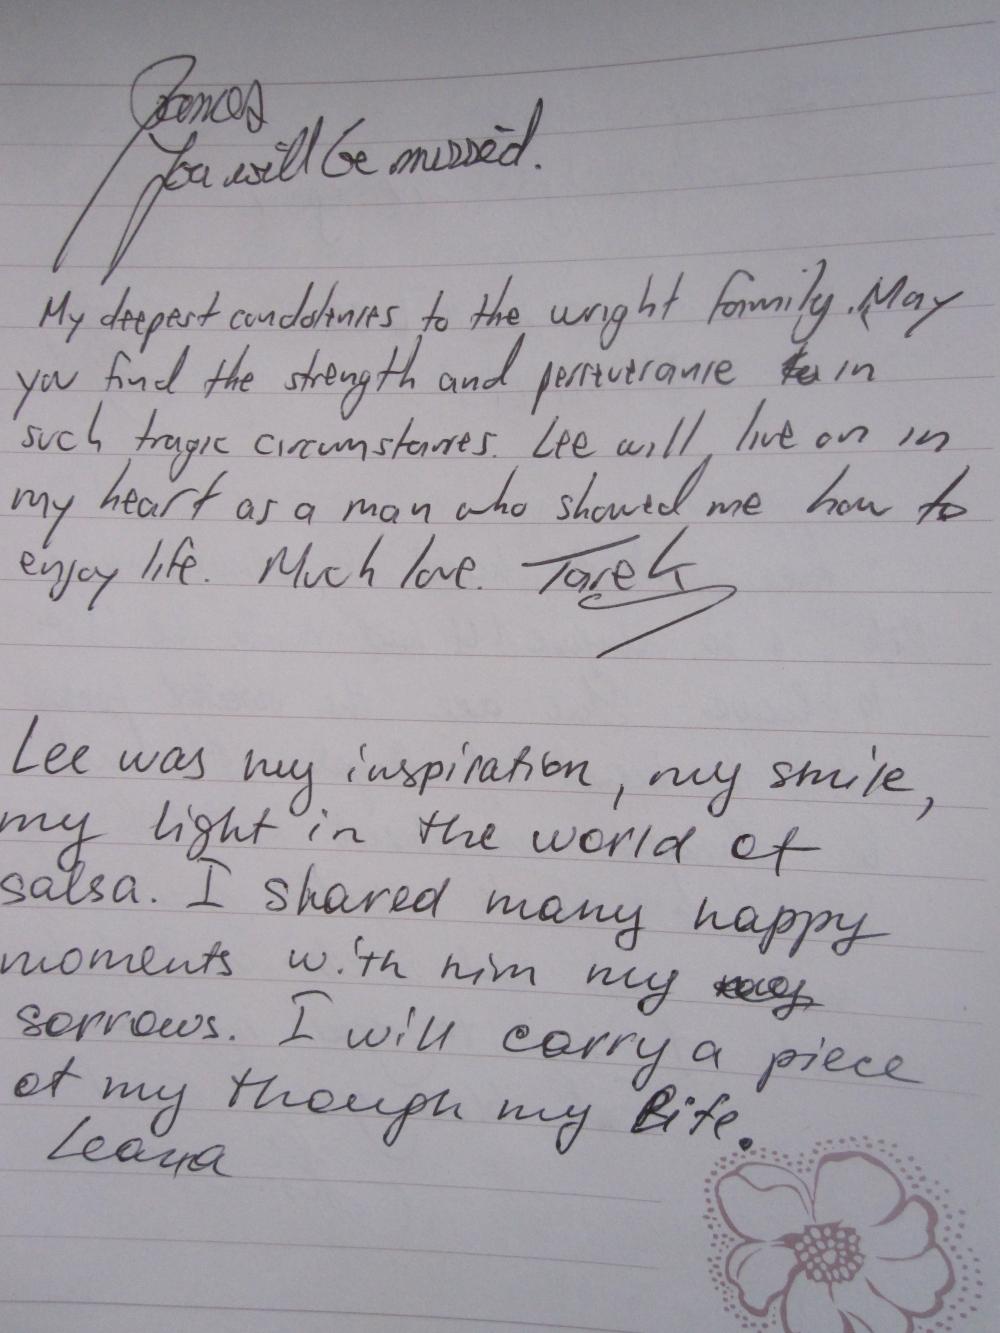 Frances
You will be missed.
My deepest condolences to the wright family. May
you find the strength and perseverance in
such tragic circumstances. Lee will live on in
my heart as a man who showed me how to
enjoy life. Much love. Tarek
Lee was my inspiration, my smile,
my light in the world of
salsa. I shared many happy
moments with him my
sorrows. I will carry a piece
of my though my life.
Leana